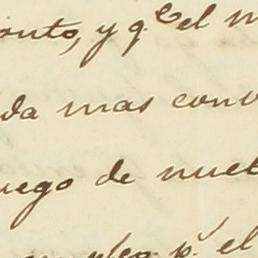 onto, y q.e el m
da mas conv
uego de nuev
p.r el